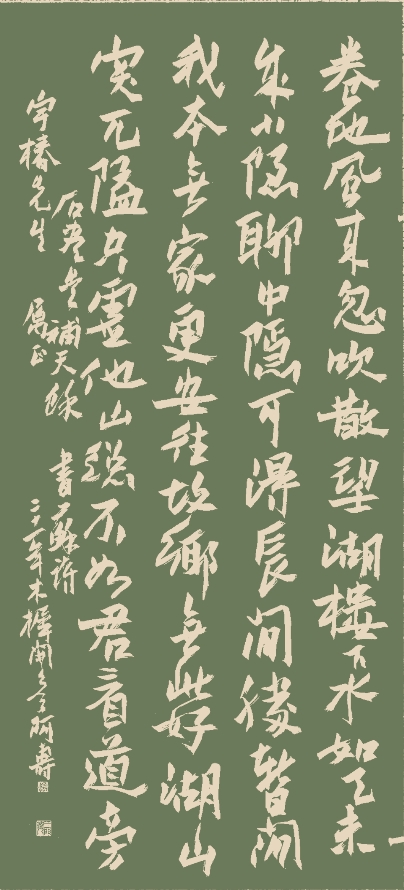 卷地風来忽吹散望湖樓下水如天未
成小隱聊中隱可得長閒勝暫閒
我本無家更安往故鄉無此好湖山
突兀隘空虛他山總不如君看道旁
石盡是補天餘 書大蘇詩
宇椿先生 屬正 二十一年木樨開